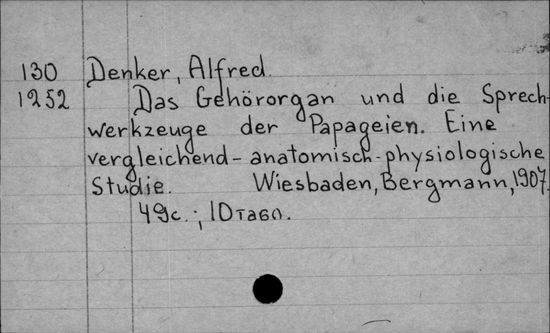 130 Denker, Alfred.
1252 Das Gehörorgan und die Sprech-
werkzeuge der Papageien. Eine
vergleichend-anatomisch-physiologische
Studie. Wiesbaden, Bergmann, 1907.
49с.; 10табл.